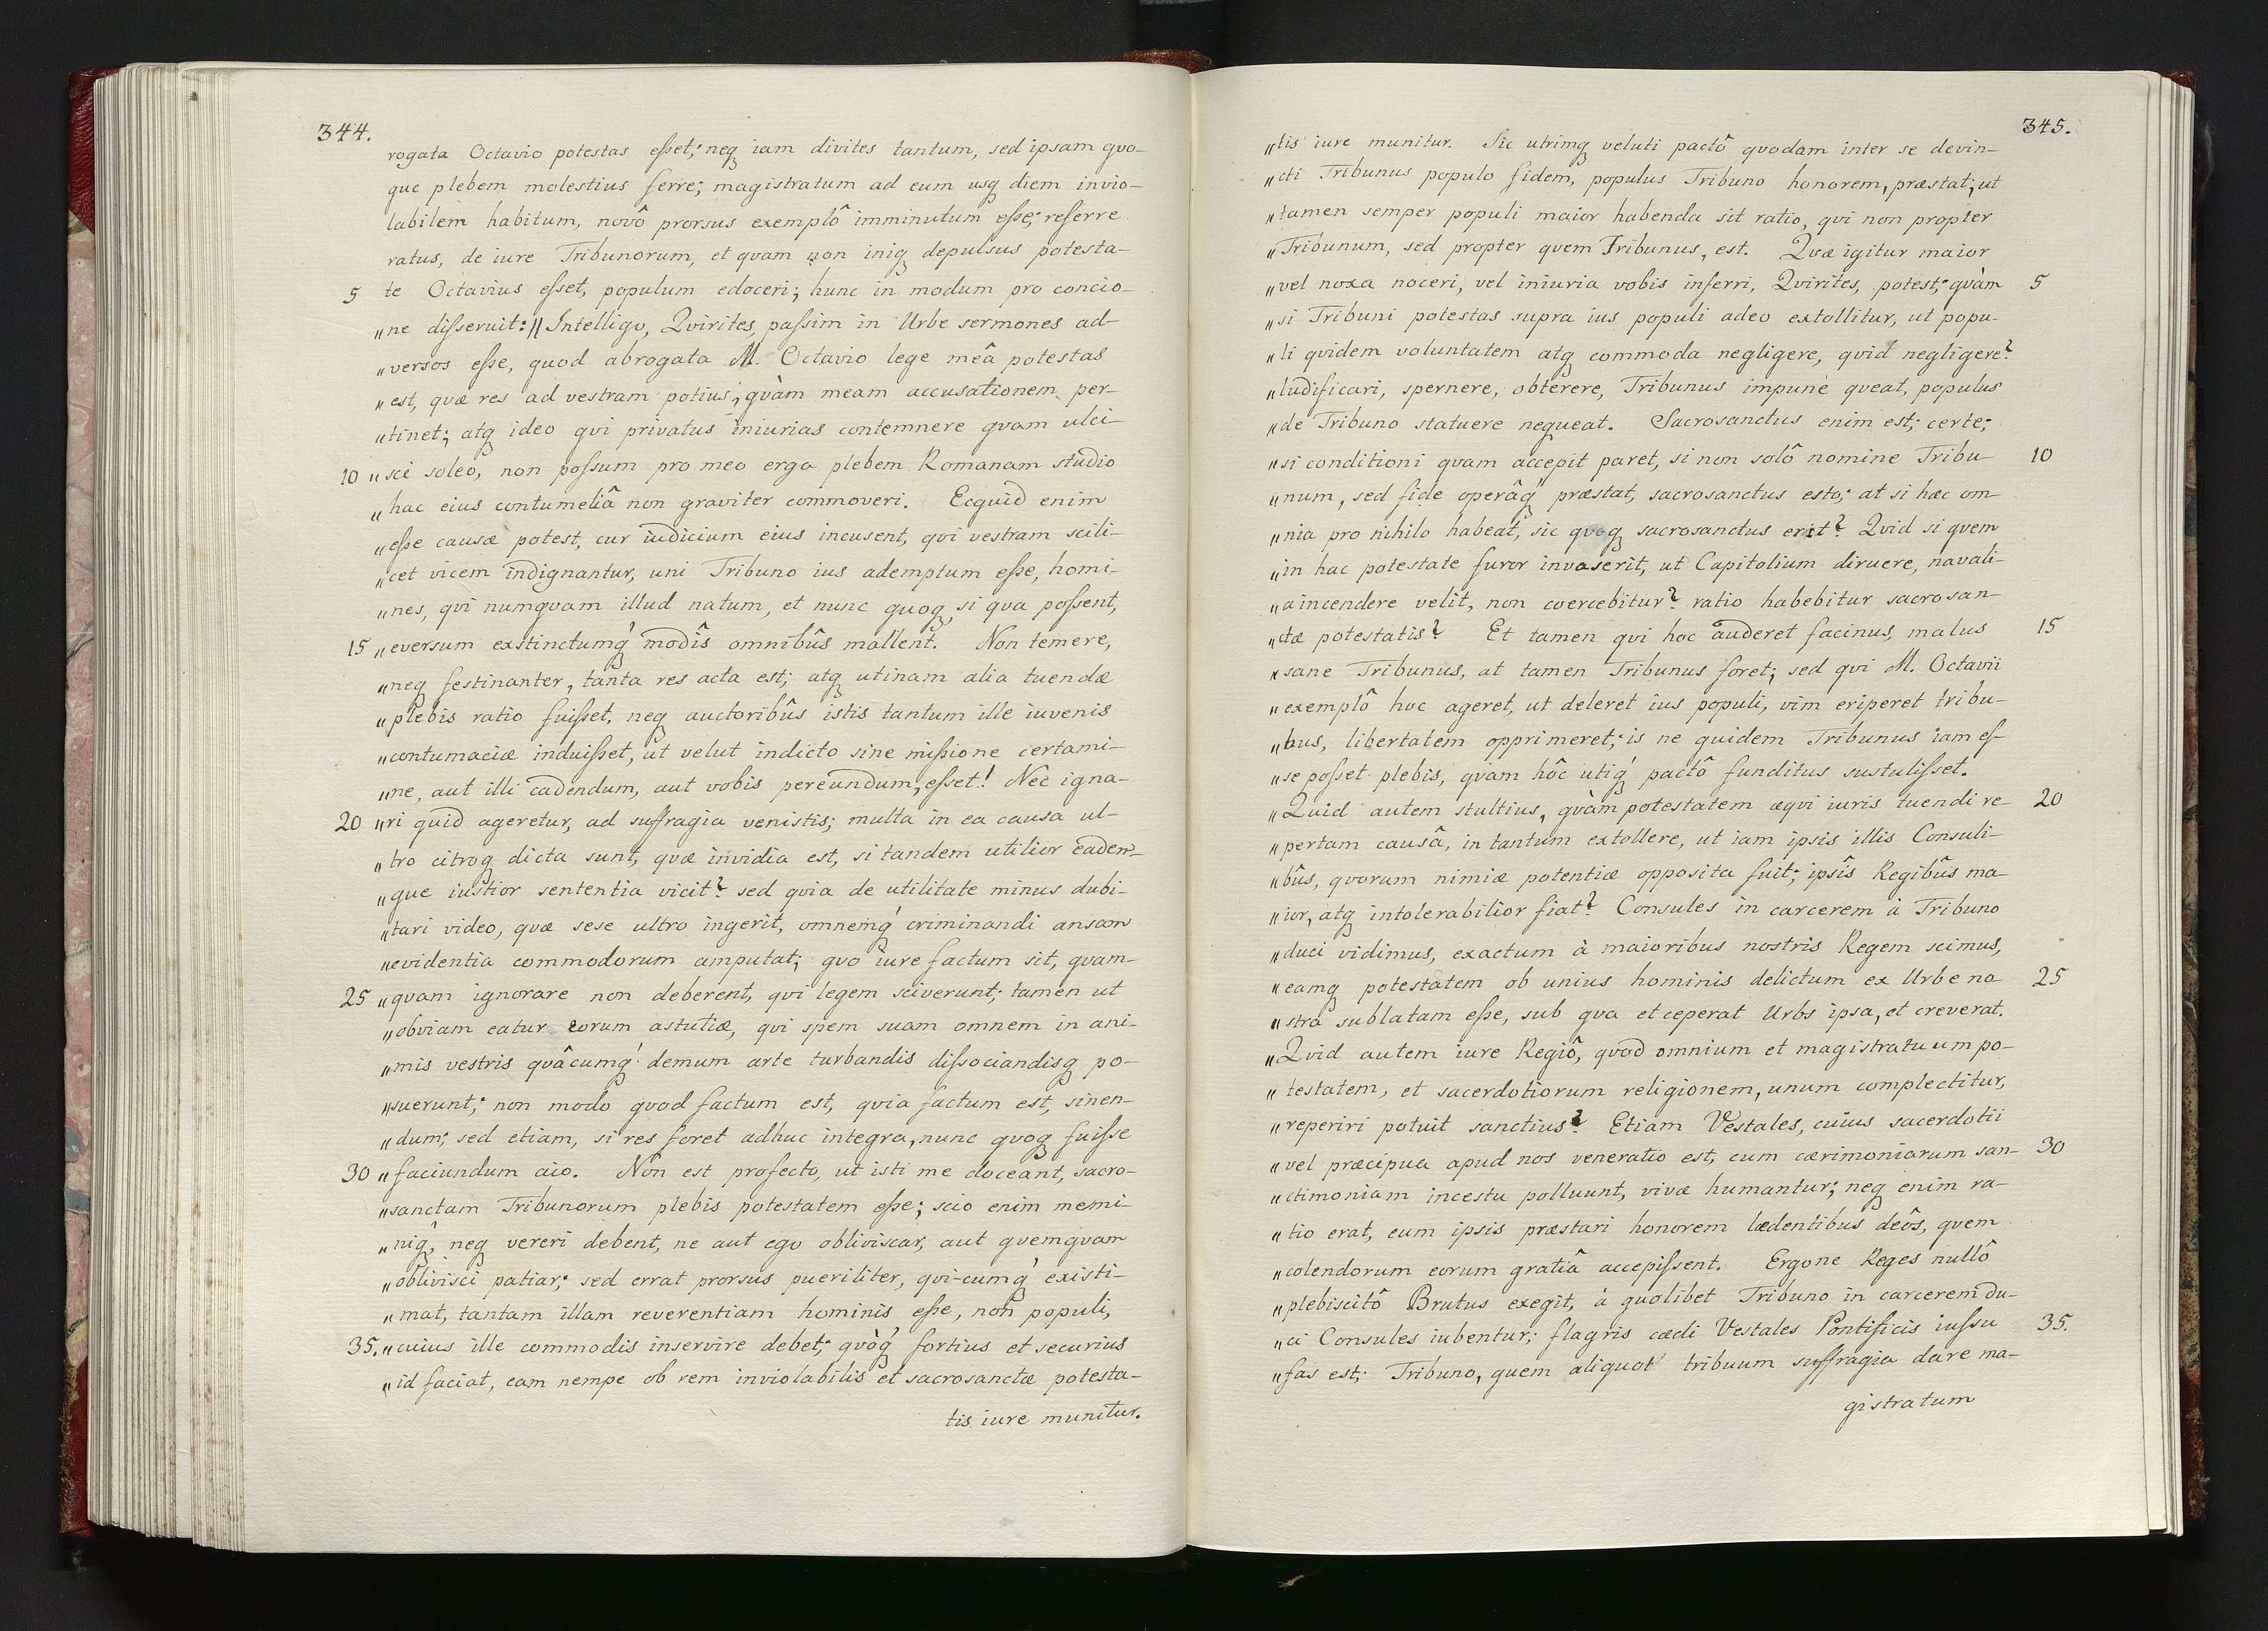 344.
rogata Octavio potestas eſset; neq́ iam divites tantum, sed ipsam quo-
que plebem molestius ferre; magistratum ad eum usq́ diem invio-
labilem habitum, novô prorsus exemplô imminutum eſse; referre
ratus, de iure Tribunorum, et quam non iniq́ depulsus potesta-
5 te Octavius eſset, populum edoceri; hunc in modum pro concio-
„ne diſseruit: // Intelligo, Qvirites, paſsim in Urbe sermones ad-
„versos eſse, quod abrogata M. Octavio lege meâ potestas
„est, quæ res ad vestram potius, qvàm meam accusationem per-
„tinet; atq́ ideo qvi privatus iniurias contemnere qvam ulci-
10 „sci soleo, non poſsum pro meo erga plebem Romanam studio
„hac eius contumeliâ non graviter commoveri. Ecquid enim
„eſse causæ potest, cur iudicium eius incusent, qvi vestram scili-
„cet vicem indignantur, uni Tribuno ius ademptum eſse, homi-
„nes, qvi numqvam illud natum, et nunc quoq́, si qva poſsent,
15 „eversum exstinctumq́ modîs omnibûs mallent. Non temere,
„neq́ festinanter, tanta res acta est; atq́ utinam alia tuendæ
„plebis ratio fuiſset, neq́ auctoribûs istis tantum ille iuvenis
„contumaciæ induiſset, ut velut indicto sine miſsione certami-
„ne, aut illi cadendum, aut vobis pereundum, eſset! Nec igna-
20 „ri quid ageretur, ad suffragia venistis; multa in ea causa ul-
„tro citroq́ dicta sunt, quæ invidia est, si tandem utilior eadem-
„que iustior sententia vicit? sed qvia de utilitate minus dubi-
„tari video, qvæ sese ultro ingerit, omnemq́ criminandi ansam
„evidentia commodorum amputat; qvo iure factum sit, qvam-
25 „qvam ignorare non deberent, qvi legem sciverunt; tamen ut
„obviam eatur eorum astutiæ, qvi spem suam omnem in ani-
„mis vestris qvâcumq́ demum arte turbandis diſsociandisq́ po-
„suerunt; non modo quod factum est, qvia factum est, sinen-
„dum; sed etiam, si res foret adhuc integra, nunc qvoq́ fuiſse
30 „faciundum aio. Non est profecto, ut isti me doceant, sacro-
„sanctam Tribunorum plebis potestatem eſse; scio enim memi-
„niq́, neq́ vereri debent, ne aut ego obliviscar, aut qvemqvam
„oblivisci patiar; sed errat prorsus pueriliter, qvi-cumq́ existi-
„mat, tantam illam reverentiam hominis eſse, non populi,
35. „cuius ille commodis inservire debet; qvòq́ fortius et securius
„id faciat, eam nempe ob rem inviolabilis et sacrosanctæ potesta-
tis iure munitur.
345.
„tis iure munitur. Sic utrimq́ veluti pactô qvodam inter se devin-
„cti Tribunus populo fidem, populus Tribuno honorem, præstat; ut
„tamen semper populi maior habenda sit ratio, qvi non propter
„Tribunum, sed propter qvem Tribunus, est. Qvæ igitur maior
„vel noxa noceri, vel iniuria vobis inferri, Qvirites, potest; qvàm 5
„si Tribuni potestas supra ius populi adeo extollitur, ut popu-
„li qvidem voluntatem atq́ commoda negligere, qvid negligere?
„ludificari, spernere, obterere, Tribunus impune qveat, populus
„de Tribuno statuere neqveat. Sacrosanctus enim est; certe;
„si conditioni qvam accepit paret, si non solô nomine Tribu- 10
„num, sed fide operâq́ præstat, sacrosanctus esto; at si hæc om-
„nia pro nihilo habeat, sic qvoq́ sacrosanctus erit? Qvid si qvem
„in hac potestate furor invaserit, ut Capitolium diruere, navali-
„a incendere velit, non coercebitur? ratio habebitur sacrosan-
„ctæ potestatis? Et tamen qvi hoc auderet facinus, malus 15
„sane Tribunus, at tamen Tribunus foret; sed qvi M. Octavii
„exemplô hoc ageret, ut deleret ius populi, vim eriperet tribu-
„bus, libertatem opprimeret; is ne quidem Tribunus iam eſ-
„se poſset plebis, qvam hôc utiq́ pactô funditus sustuliſset.
„Quid autem stultius, qvàm potestatem æqvi iuris tuendi re- 20
„pertam causâ, in tantum extollere, ut iam ipsis illis Consuli-
„bûs, qvorum nimiæ potentiæ opposita fuit; ipsîs Regibûs ma-
„ior, atq́ intolerabilior fiat? Consules in carcerem à Tribuno
„duci vidimus, exactum à maioribus nostris Regem scimus,
„eamq́ potestatem ob unius hominis delictum ex Urbe no- 25
„stra sublatam eſse, sub qva et ceperat Urbs ipsa, et creverat.
„Qvid autem iure Regiô, qvod omnium et magistratuum po-
„testatem, et sacerdotiorum religionem, unum complectitur,
„reperiri potuit sanctius? Etiam Vestales, cuius sacerdotii
„vel præcipua apud nos veneratio est, cum cærimoniarum san- 30
„ctimoniam incestu polluunt, vivæ humantur; neq́ enim ra-
„tio erat, eum ipsis præstari honorem lædentibus deôs, qvem
„colendorum eorum gratiâ accepiſsent. Ergone Reges nullô
„plebiscitô Brutus exegit, à quolibet Tribuno in carcerem du-
„ci Consules iubentur; flagris cædi Vestales Pontificis iussu 35.
„fas est; Tribuno, quem aliquot tribuum suffragia dare ma-
gistratum